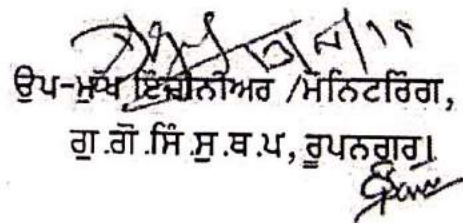 ਉਪ-ਮੁੱਖ ਇੰਜੀਨੀਅਰ /ਮੋਨਿਟਰਿੰਗ,
ਗੁ.ਗੋ.ਸਿੰ.ਸੁ.ਥ.ਪ, ਰੂਪਨਗਰ।